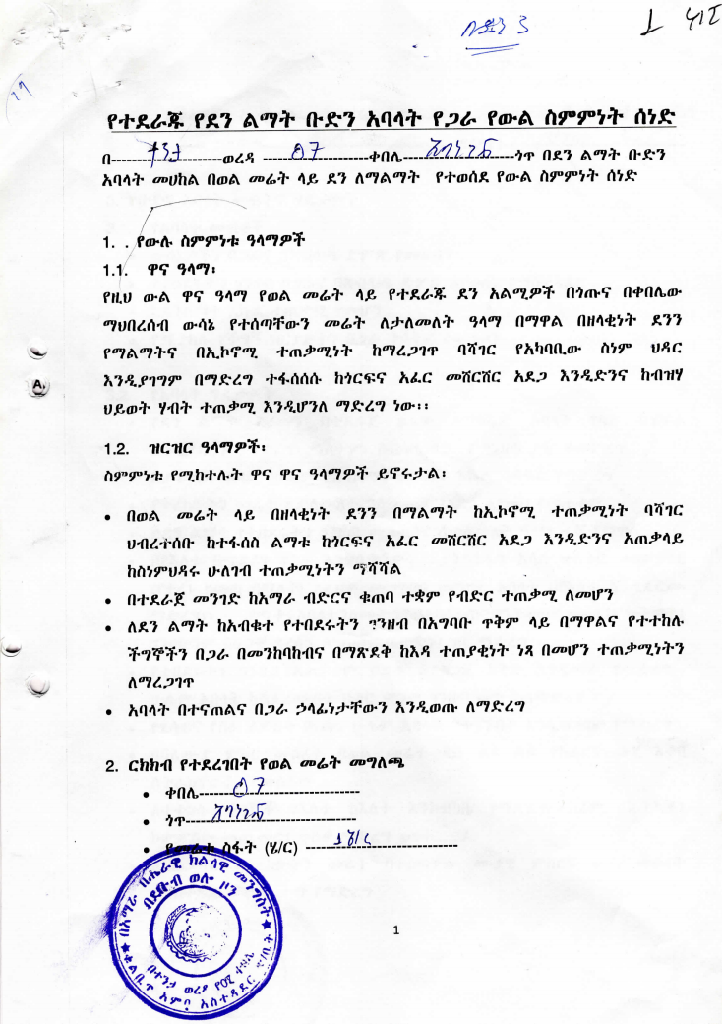 የተደራጁ የደን ልማት ቡድን አባላት የጋራ የውል ስምምነት ሰነድ
በ---------------------ወረዳ ---------07------------ቀበሌ-----------------------ጎጥ በደን ልማት ቡድን
አባላት መሀከል በወል መሬት ላይ ደን ለማልማት የተወሰደ የውል ስምምነት ሰነድ
1. . የውሉ ስምምነቱ ዓላማዎች
1.1. ዋና ዓላማ፡
የዚህ ውል ዋና ዓላማ የወል መሬት ላይ የተደራጁ ደን አልሚዎች በጎጡና በቀበሌው
ማህበረሰብ ውሳኔ የተሰጣቸውን መሬት ለታለመለት ዓላማ በማዋል በዘላቂነት ደንን
የማልማትና በኢኮኖሚ ተጠቃሚነት ከማረጋገጥ ባሻገር የአካባቢው ስነም ህዳር
እንዲያገግም በማድረግ ተፋሰሰሱ ከጎርፍና አፈር መሸርሸር አደጋ እንዲድንና ከብዝሃ
ህይወት ሃብት ተጠቃሚ እንዲሆንለ ማድረግ ነው፡፡
1.2. ዝርዝር ዓላማዎች፡
ስምምነቱ የሚከተሉት ዋና ዋና ዓላማዎች ይኖሩታል፡
• በወል መሬት ላይ በዘላቂነት ደንን በማልማት ከኢኮኖሚ ተጠቃሚነት ባሻገር
ህብረተሰቡ ከተፋሰስ ልማቱ ከጎርፍና አፈር መሸርሸር አደጋ እንዲድንና አጠቃላይ
ከስነምህዳሩ ሁለገብ ተጠቃሚነትን ማሻሻል
• በተደራጀ መንገድ ከአማራ ብድርና ቁጠባ ተቋም የብድር ተጠቃሚ ለመሆን
• ለደን ልማት ከአብቁተ የተበደሩትን ገንዘብ በአግባቡ ጥቅም ላይ በማዋልና የተተከሉ
ችግኞችን በጋራ በመንከባከብና በማጽደቅ ከእዳ ተጠያቂነት ነጻ በመሆን ተጠቃሚነትን
ለማረጋገጥ
• አባላት በተናጠልና በጋራ ኃላፊነታቸውን እንዲወጡ ለማድረግ
2. ርክክብ የተደረገበት የወል መሬት መግለጫ
• ቀበሌ------07---------------------
• ጎጥ--------------------------------
• የመሬቱ ስፋት (ሄ/ር) ----------------------------
በአማራ ብሔራዊ ክልላዊ መንግስት
በደቡብ ወሎ ዞን
1